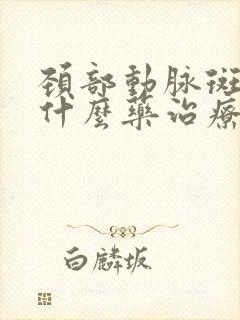 頚部動脉斑
什麼藥治療
白麟坂